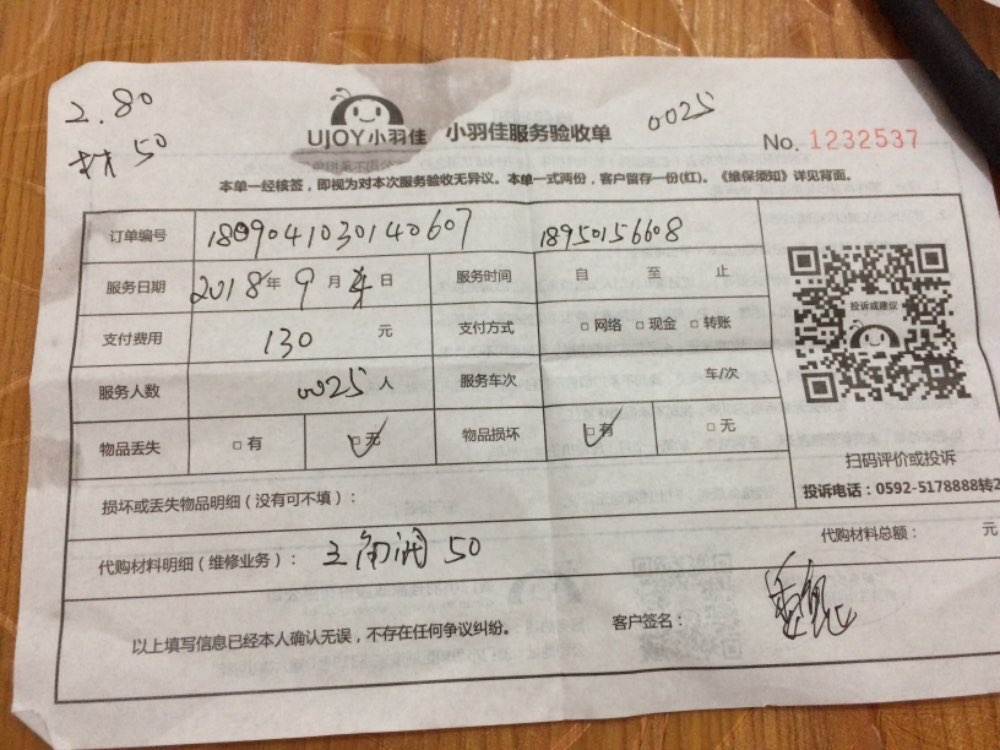 2.80
材 50
UJOY小羽佳 小羽佳服务验收单 0025
No. 1232537
本单一经核签，即视为对本次服务验收无异议。本单一式两份，客户留存一份(红)。《维保须知》详见背面。
订单编号 1809041030140607 18950156608
服务日期 2018年9月4日 服务时间 自 至 止
支付费用 130 元 支付方式 □网络 □现金 □转账
投诉或建议
服务人数 0025人 服务车次 车/次
物品丢失 □有 □无 物品损坏 □有 □无
扫码评价或投诉
损坏或丢失物品明细（没有可不填）：
投诉电话：0592-5178888转2
代购材料明细（维修业务）： 三角阀 50 代购材料总额： 元
以上填写信息已经本人确认无误，不存在任何争议纠纷。 客户签名：